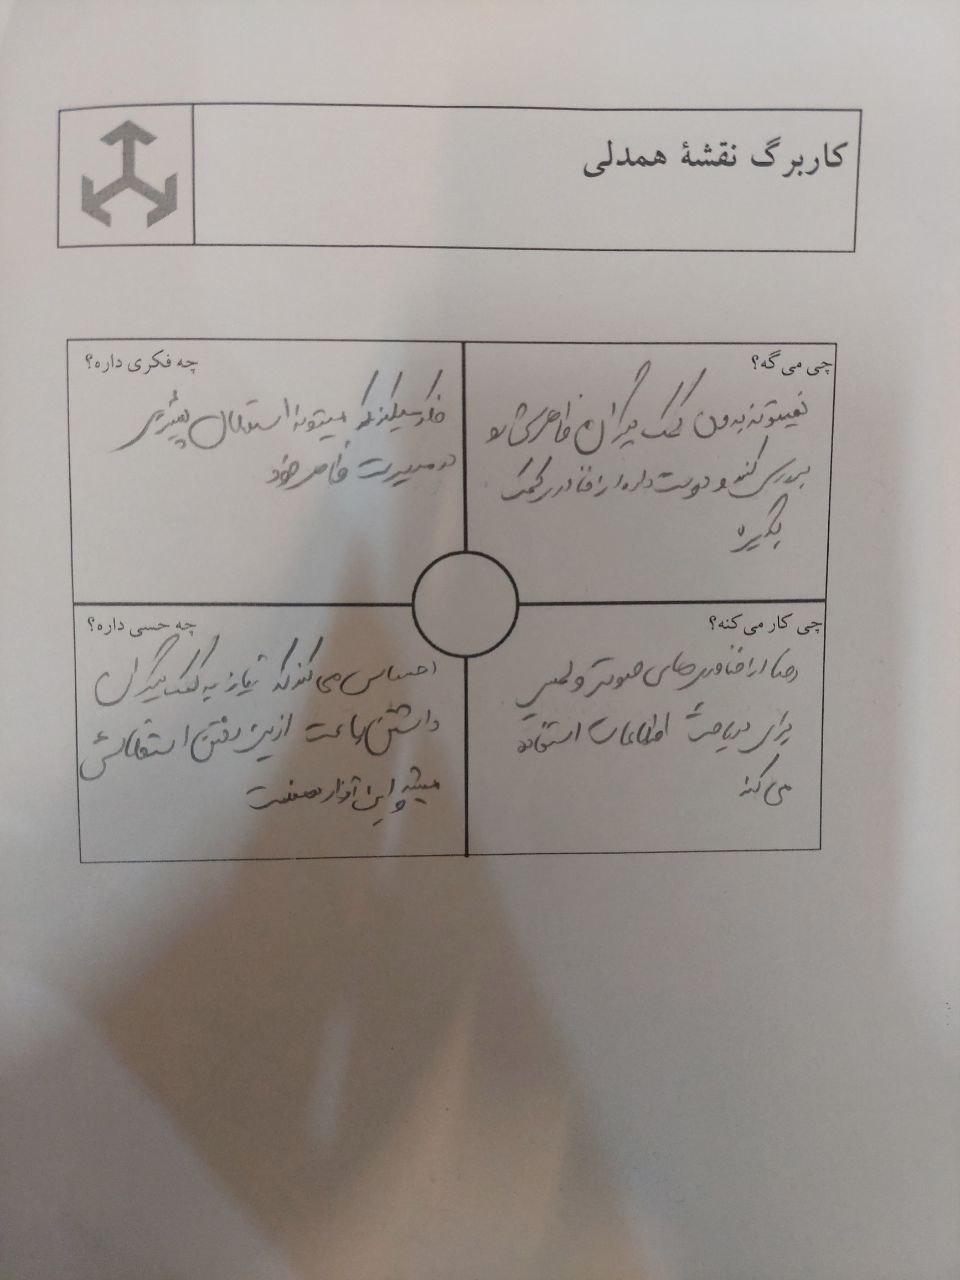 کاربرگ نقشهٔ همدلی
چی می گه؟
نمیتونه بدون کمک دیگران ظاهرش رو
بررسی کند و دوست داره از فناوری کمک
بگیره
چه فکری داره؟
فکر میکند که میتونه استقلال بیشتری
در مدیریت ظاهر خود
چی کار می کنه؟
رضا از فناوری‌های صوتی و لمسی
برای دریافت اطلاعات استفاده
می کنه
چه حسی داره؟
احساس می کند که نیاز به کمک دیگران
داشتن باعث از بین رفتن استقلالش
میشه و این آزار دهندست